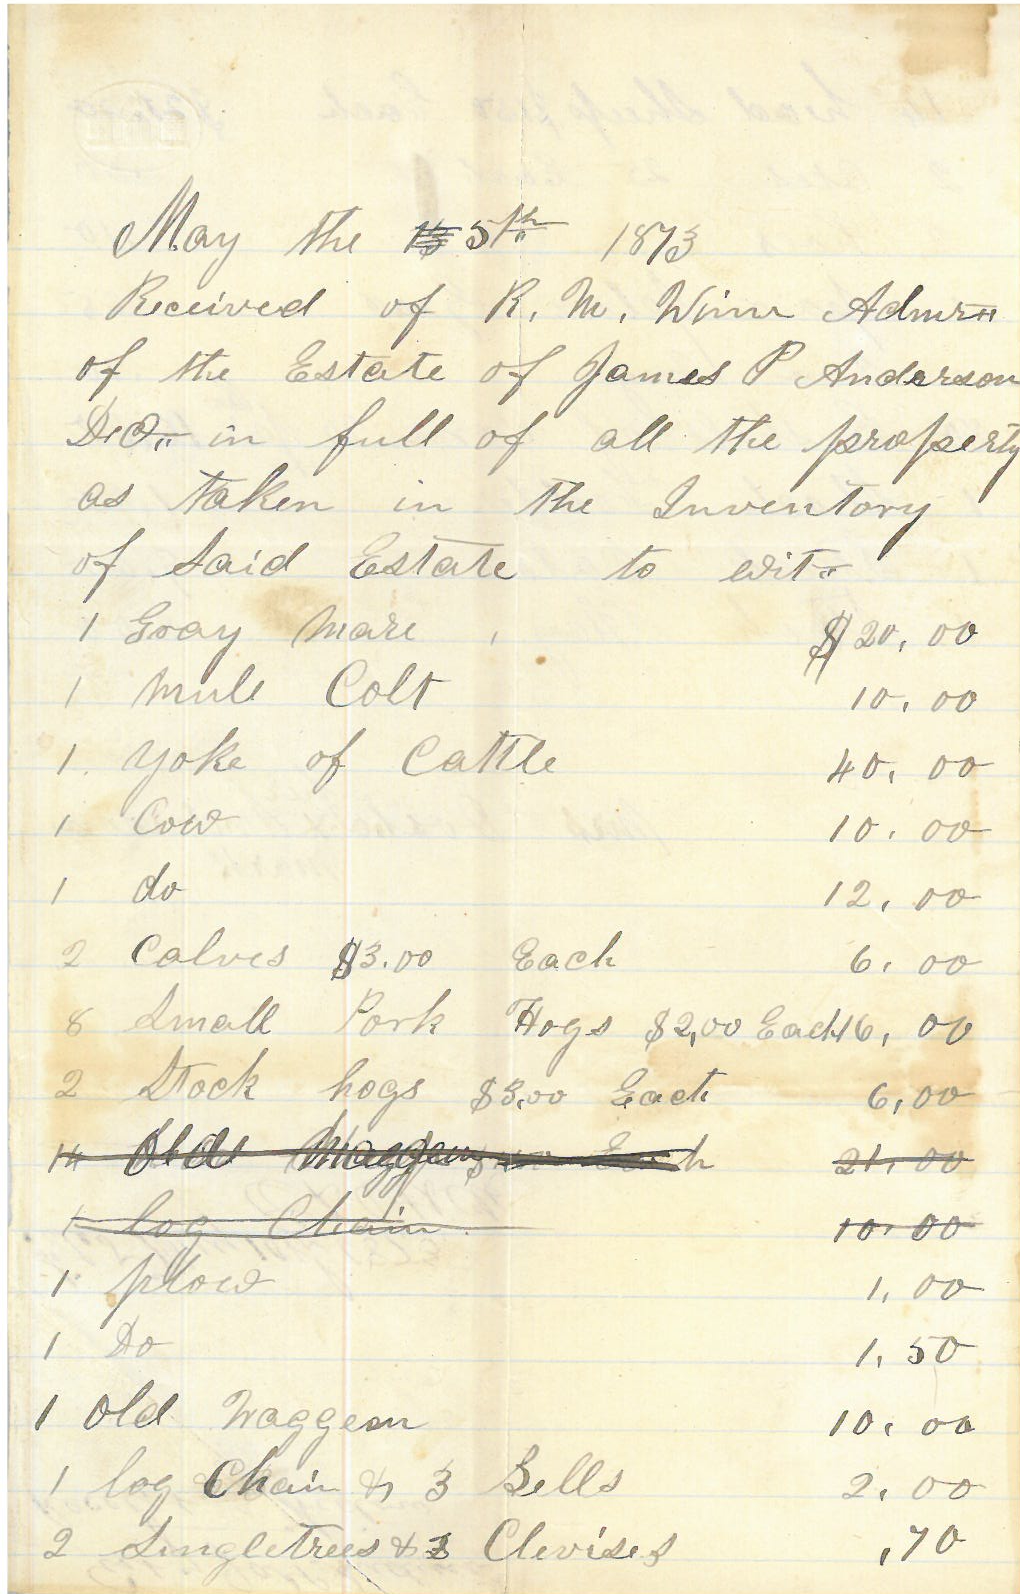 May the 5th 1873
Received of R. M. Winn Admr
of the Estate of James P Anderson
Decd in full of all the property
as taken in the Inventory
of Said Estate to wit
1 Gray Mare $20.00
1 Mule Colt 10.00
1. Yoke of Cattle 40.00
1 Cow 10.00
1 do 12.00
2 Calves $3.00 Each 6.00
8 Small Pork Hogs $2,00 Each 16,00
2 Stock hogs $3.00 Each 6,00
14 Old Waggon Each 21.00
1 log Chain 10.00
1. plow 1,00
1 Do 1.50
1 Old Waggon 10.00
1 log Chain & 3 Bells 2.00
2 Singletrees & Clevises ,70